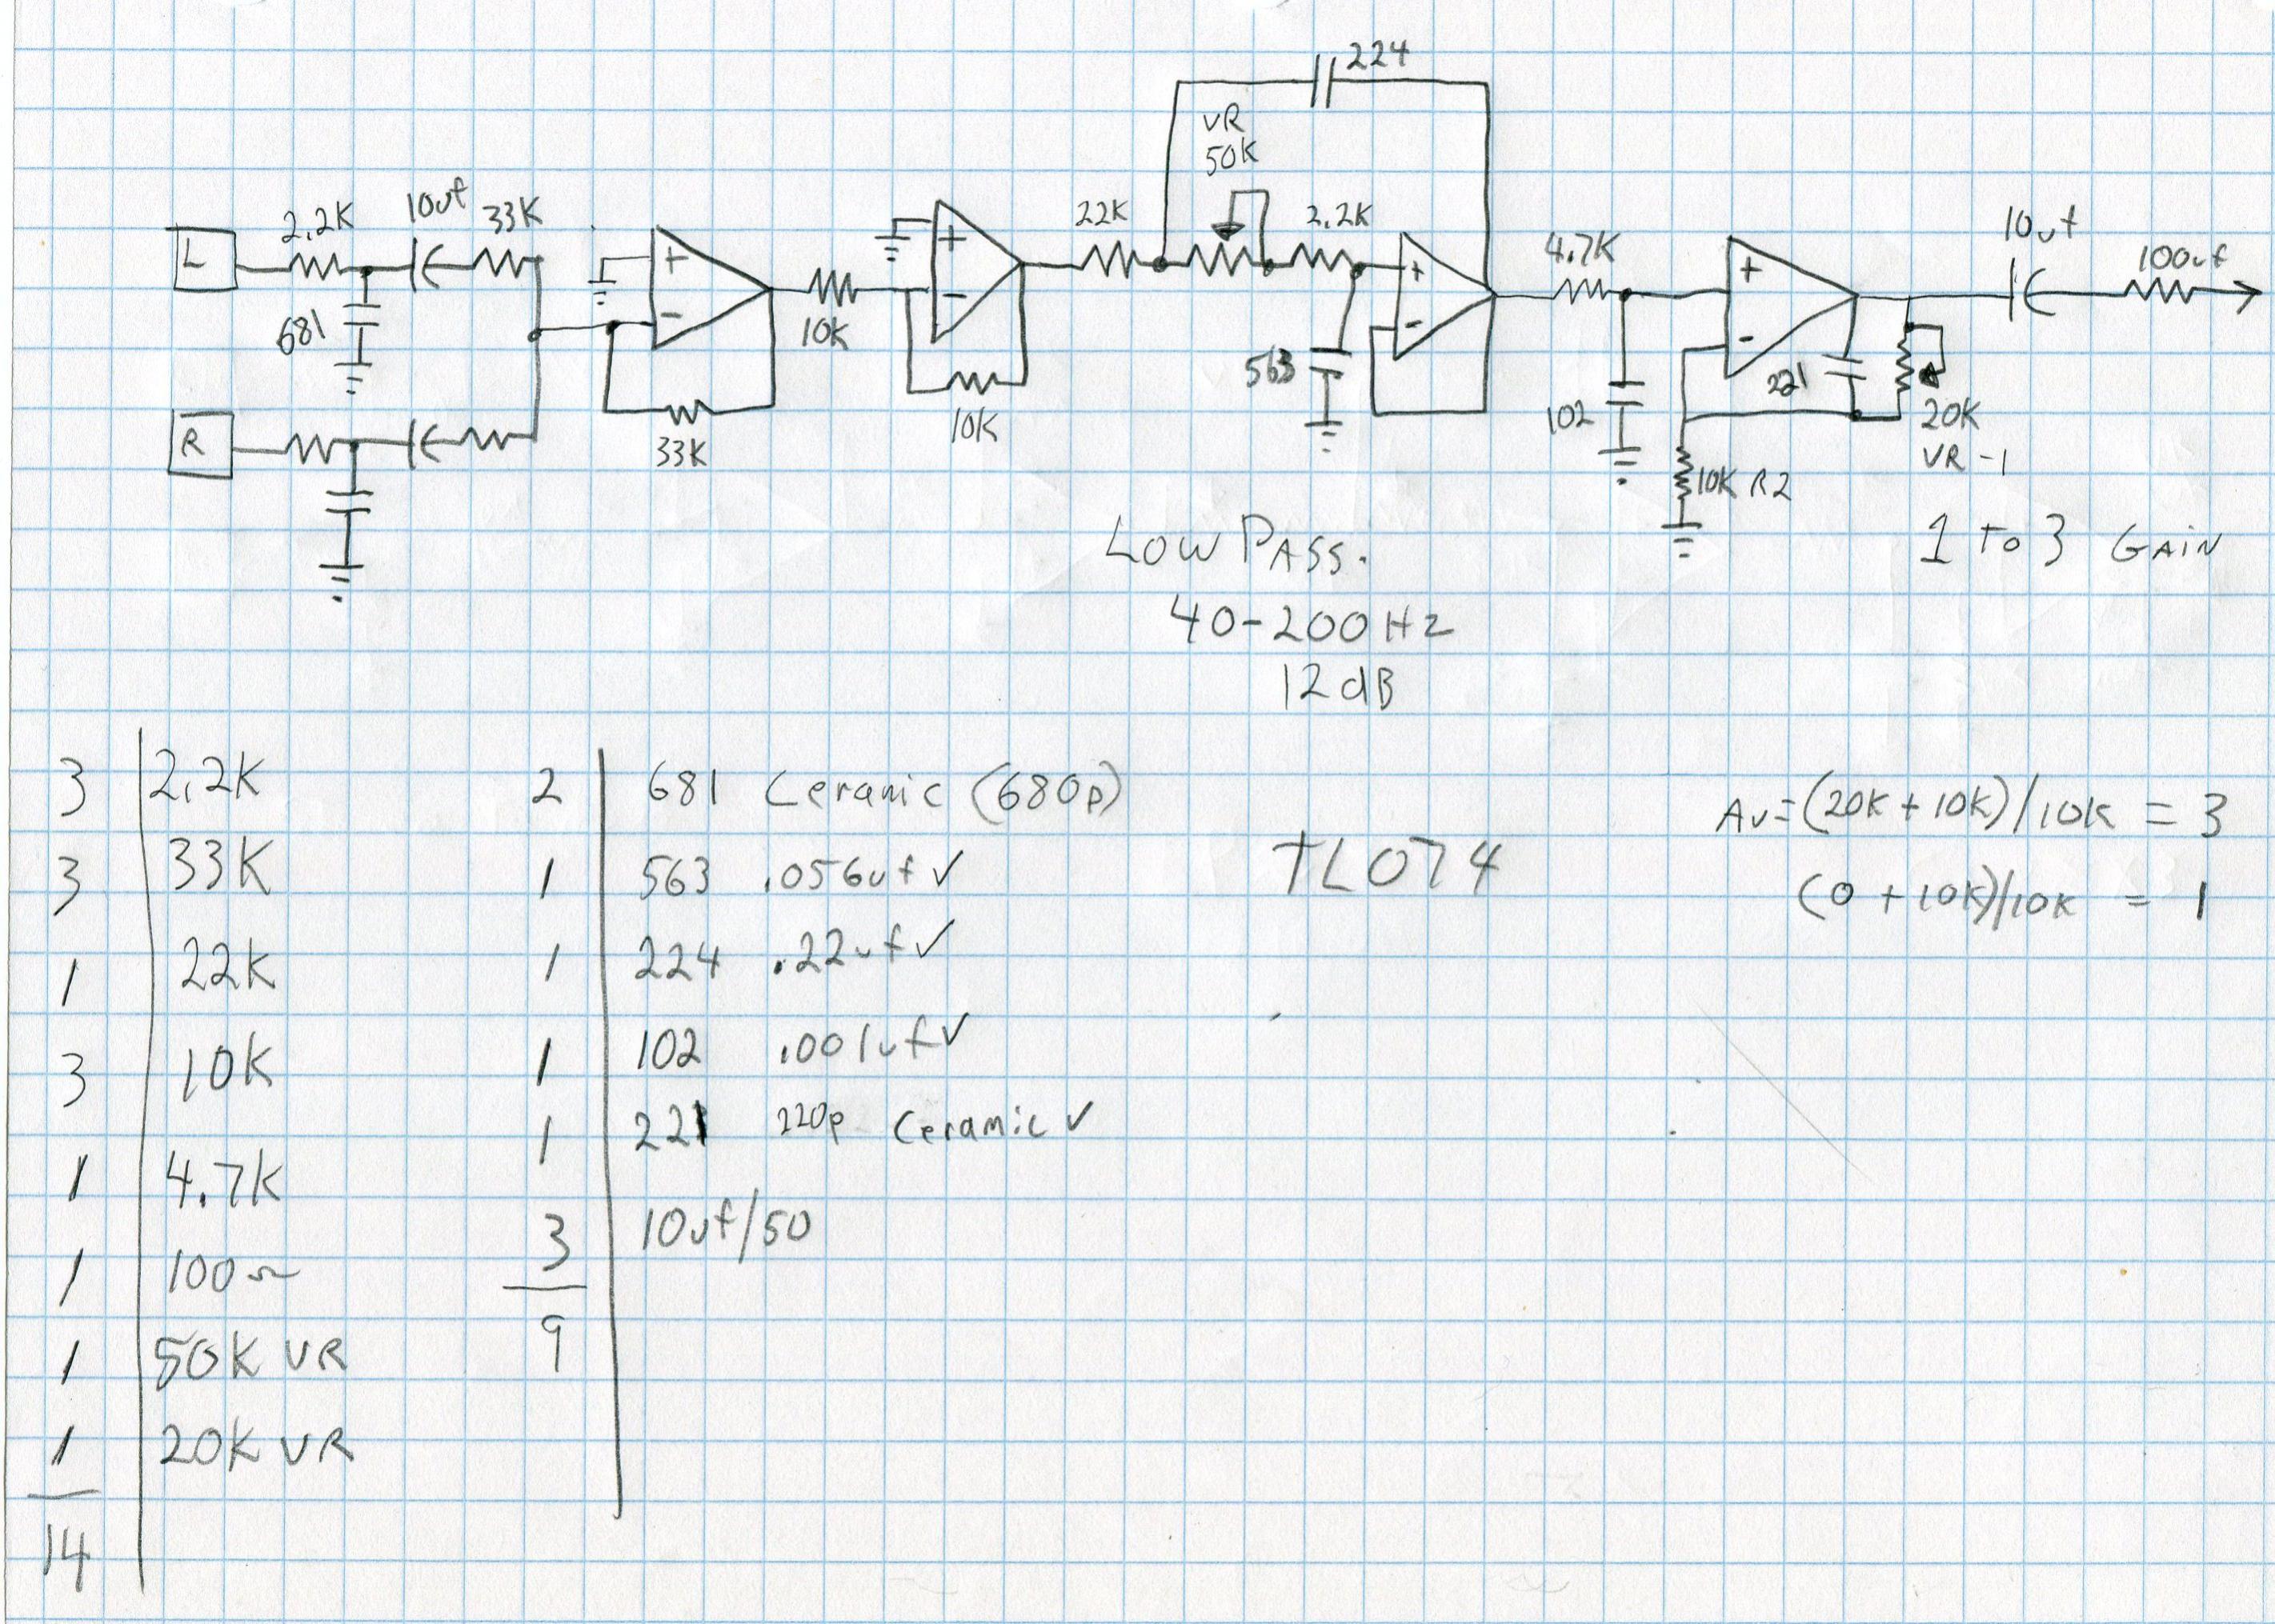 224
VR
50K
L
2.2K
10uf
33K
681
R
+
-
33K
10K
+
-
10K
22K
2.2K
+
-
563
4.7K
102
+
-
221
20K
VR-1
10K R2
10uf
100uf
1 To 3 GAIN
Low PASS.
40-200Hz
12dB
3 2.2K
3 33K
1 22K
3 10K
1 4.7K
1 100Ω
1 50K VR
1 20K VR
14
2 681 Ceramic (680p)
1 563 .056uf ✓
1 224 .22uf ✓
1 102 .001uf ✓
1 221 220p Ceramic ✓
3 10uf/50
9
TL074
Av=(20K+10K)/10K = 3
(0+10K)/10K = 1